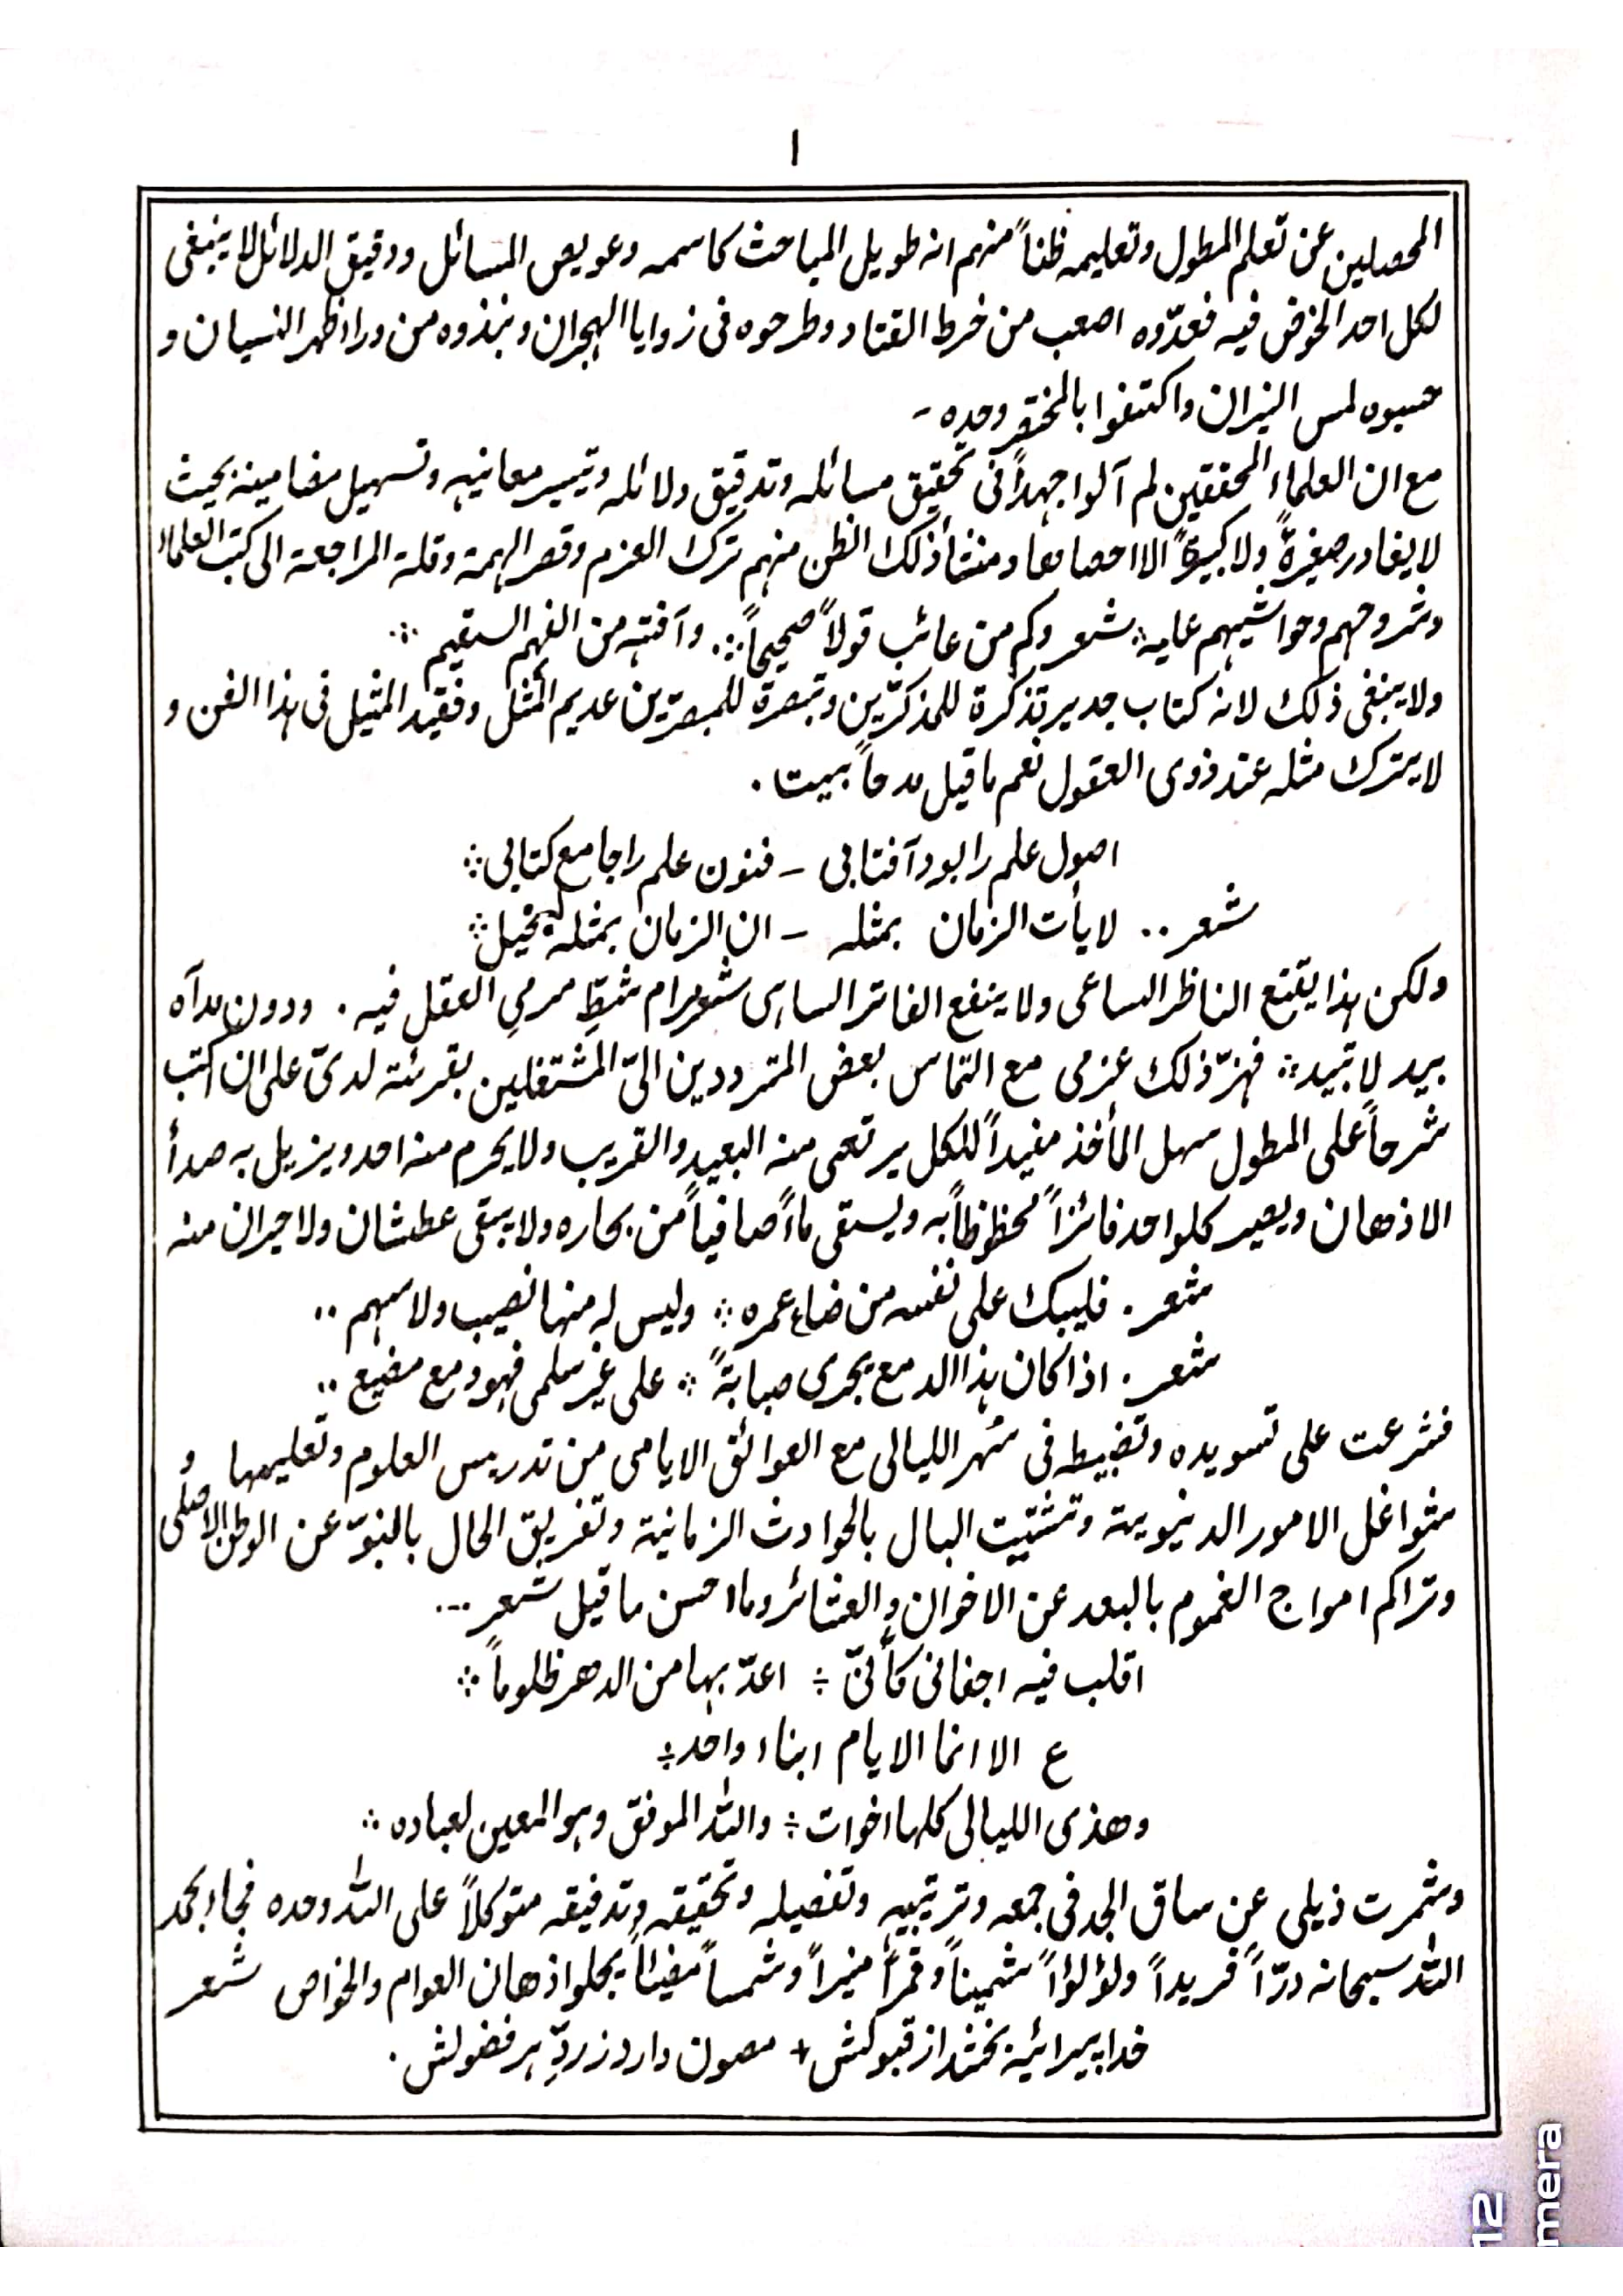 ١
المحصلين عن تعلم المطول وتعليمه ظناً منهم انه طويل المباحث كاسمه وعويص المسائل ودقيق الدلائل لا ينبغى
لكل احد الخوض فيه فعدّوه اصعب من خرط القتاد وطرحوه فى زوايا الهجران ونبذوه من وراء ظهر النسيان و
حسبوه لمس النيران واكتفوا بالمختصر وحده -
مع ان العلماء المحققين لم آلوا جهداً فى تحقيق مسائله وتدقيق دلائله وتيسير معانيه وتسهيل مضامينه بحيث
لا يغادر صغيرةً ولا كبيرةً الا احصاها ومنشأ ذلك الظن منهم ترك العزم وقصر الهمة وقلة المراجعة الى كتب العلماء
وشروحهم وحواشيهم عليه ∴ شعر وكم من عائب قولاً صحيحاً ∴ وآفته من الفهم السقيم ∴
ولا ينبغى ذلك لانه كتاب جدير تذكرة للمذكرّين وتبصرة للمبصرّين عديم المثل وفقيد المثيل فى هذا الفن و
لا يترك مثله عند ذوى العقول نعم ما قيل مدحاً بيتا .
اصول علم را بود آفتابى - فنون علم را جامع كتابى ∴
شعر .. لا يأت الزمان بمثله - ان الزمان بمثله لبخيل ∴
ولكن هذا يقنع الناظر الساعى ولا ينفع الفاتر الساهى شعر مرام شطِّ مرمى العقل فيه . ودون مداه
بيد لا تبيد ∴ فهزّ ذلك عزمى مع التماس بعض المترددين الىّ المشتغلين بقرئته لدىّ على ان اكتب
شرحاً على المطول سهل المأخذ مفيداً للكل يرتعى منه البعيد والقريب ولا يحرم منه احد ويزيل به صدأ
الاذهان ويصير كلواحد فائزاً محظوظاً به ويسقى ماءً صافياً من بحاره ولا يبقى عطشان ولا حيران منه
شعر . فليبك على نفسه من ضاع عمره ∴ وليس له منها نصيب ولا سهم ..
شعر . اذا كان هذا الدمع يجرى صبابةً ∴ على غير سلمى فهو دمع مضيع ..
فشرعت على تسويده وتضبيطه فى سهر الليالى مع العوائق الايامى من تدريس العلوم وتعليمها و
شواغل الامور الدنيوية وتشتيت البال بالحوادث الزمانية وتفريق الحال بالنبوّ عن الوطن الاصلى
وتراكم امواج الغموم بالبعد عن الاخوان والعشائر وما احسن ما قيل شعر ...
اقلب فيه اجفانى كأنىّ ÷ اعدّ بها من الدهر ظلوماً ∴
ع الا انما الايام ابناء واحد ÷
وهذى الليالى كلها اخوات ÷ والله الموفق وهو المعين لعباده ∴
وشمرت ذيلى عن ساق الجد فى جمعه وترتيبه وتفصيله وتحقيقه وتدقيقه متوكلاً على الله وحده فجاء بحمد
الله سبحانه درّاً فريداً ولؤلؤاً ثميناً وقمراً منيراً وشمساً مضيئاً يجلو اذهان العوام والخواص شعر
خدا پيرائيه بخشد از قبولش + مصون دارد ز ردِّ هر فضولش .
12
mera